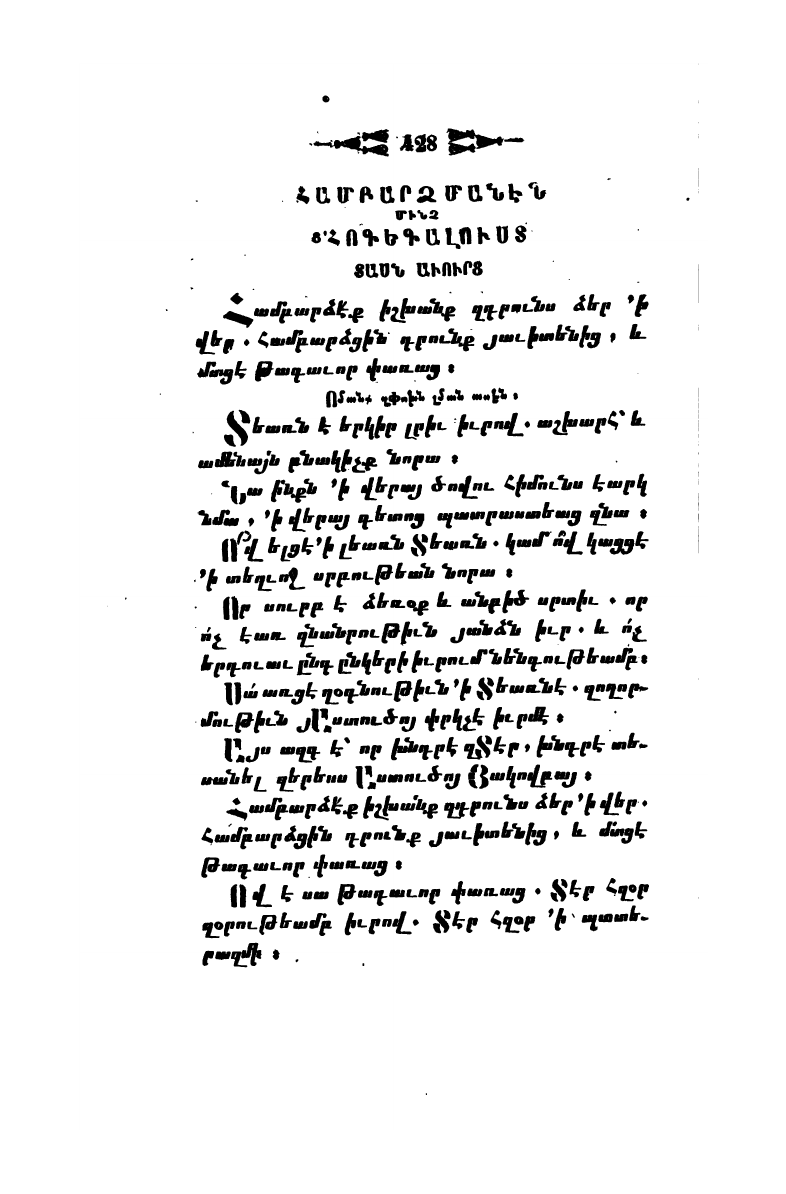 428
ՀԱՄԲԱՐՁՄԱՆԷՆ
ՄԻՆՉ
Ց՚ՀՈԳԵԳԱԼՈՒՍՏ
ՏԱՍՆ ԱՒՈՒՐՑ
Համբարձէ՛ք իշխանք զդրունս ձեր ՚ի
վեր. Համբարձցին դրունք յաւիտենից, և
մտցէ Թագաւոր փառաց։
Ոմանք զփոխն չման ասեն,
Տեառն է երկիր լրիւ իւրով. աշխարհ՝ և
ամենայն բնակիչք նորա։
Նա ինքն ՚ի վերայ ծովու հիմունս էարկ
նմա, ՚ի վերայ գետոց պատրաստեաց զնա։
Ո՞վ ելցէ ՚ի լեառն Տեառն. կամ ո՞վ կացցէ
՚ի տեղւոջ սրբութեան նորա։
Որ սուրբ է ձեռօք և անբիծ սրտիւ. որ
ո՛չ էառ զնանրութիւն յանձն իւր. և ո՛չ
երդուաւ ընդ ընկերի իւրում նենգութեամբ։
Սա՛ առցէ զօգնութիւն ՚ի Տեառնէ. զողոր-
մութիւն յԱստուծոյ փրկչէ իւրմէ։
Այս ազգ է՝ որ խնդրէ զՏէր, խնդրէ տե-
սանել զերեսս Աստուծոյ Յակովբայ։
Համբարձէ՛ք իշխանք զդրունս ձեր ՚ի վեր.
Համբարձցին դրունք յաւիտենից, և մտցէ
Թագաւոր փառաց։
Ով է սա Թագաւոր փառաց. Տէր հզօր
զօրութեամբ իւրով. Տէր հզօր ՚ի պատե-
րազմի։